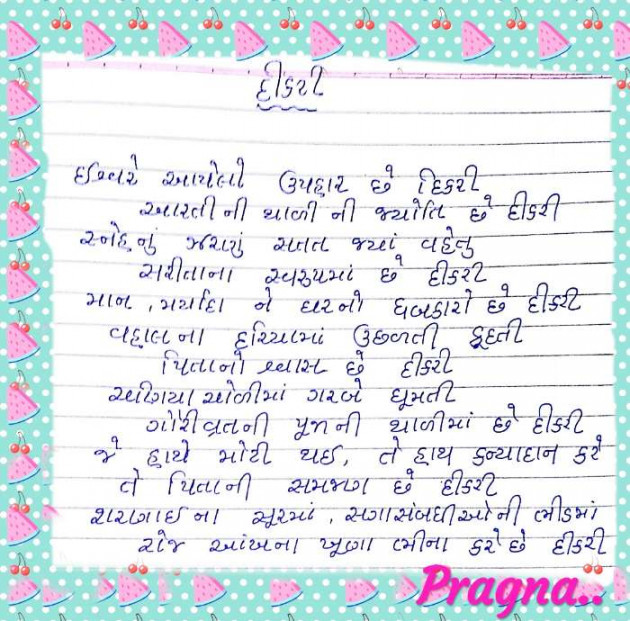 દીકરી
ઈશ્વરે આપેલો ઉપહાર છે દિકરી
આરતીની થાળી ની જ્યોતિ છે દીકરી
સ્નેહનું ઝરણું સતત જ્યાં વહેતુ
સરીતાના સ્વરુપમાં છે દીકરી
માન , મર્યાદા ને ઘરનો ધબકારો છે દીકરી
વહાલના દરિયામાં ઉછળતી કૂદતી
પિતાનો શ્વાસ છે દીકરી
ચણિયા ચોળીમાં ગરબે ઘૂમતી
ગોરીવ્રતની પૂજાની થાળીમાં છે દીકરી
જે હાથે મોટી થઈ, તે હાથ કન્યાદાન કરે
તે પિતાની સમજણ છે દીકરી
શરણાઈના સૂરમાં, સગાસંબધીઓની ભીડમાં
રોજ આંખના ખૂણા ભીના કરે છે દીકરી
Pragna..